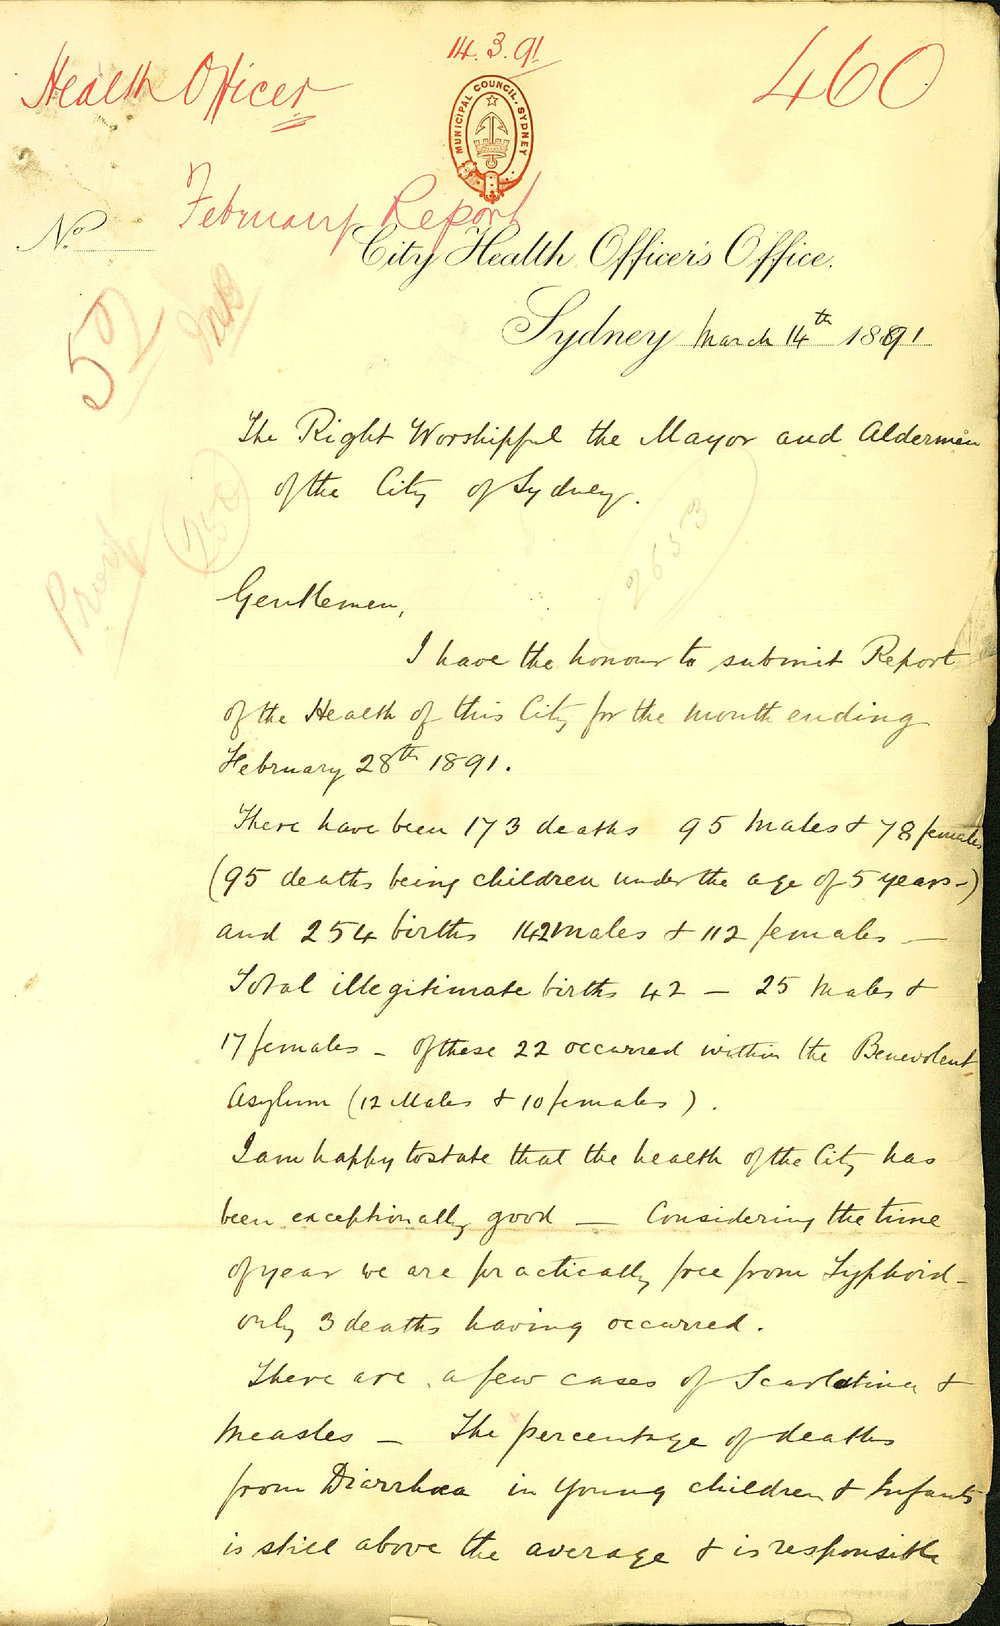 14.3.91
Health Officer
460
MUNICIPAL COUNCIL. SYDNEY
February Report
No.
City Health Officer's Office.
52
Sydney March 14th 1891
The Right Worshipful the Mayor and Aldermen
of the City of Sydney.
250
2653
Gentlemen,
I have the honour to submit Report
of the Health of this City for the month ending
February 28th 1891.
There have been 173 deaths 95 Males & 78 females
(95 deaths being children under the age of 5 years -)
and 254 births 142 Males & 112 females —
Total illegitimate births 42 — 25 Males &
17 females - of these 22 occurred within the Benevolent
Asylum (12 Males & 10 females).
I am happy to state that the health of the City has
been exceptionally good — Considering the time
of year we are practically free from Typhoid -
only 3 deaths having occurred.
There are a few cases of Scarlatina &
Measles — The percentage of deaths
from Diarrhoea in young children & Infants
is still above the average & is responsible